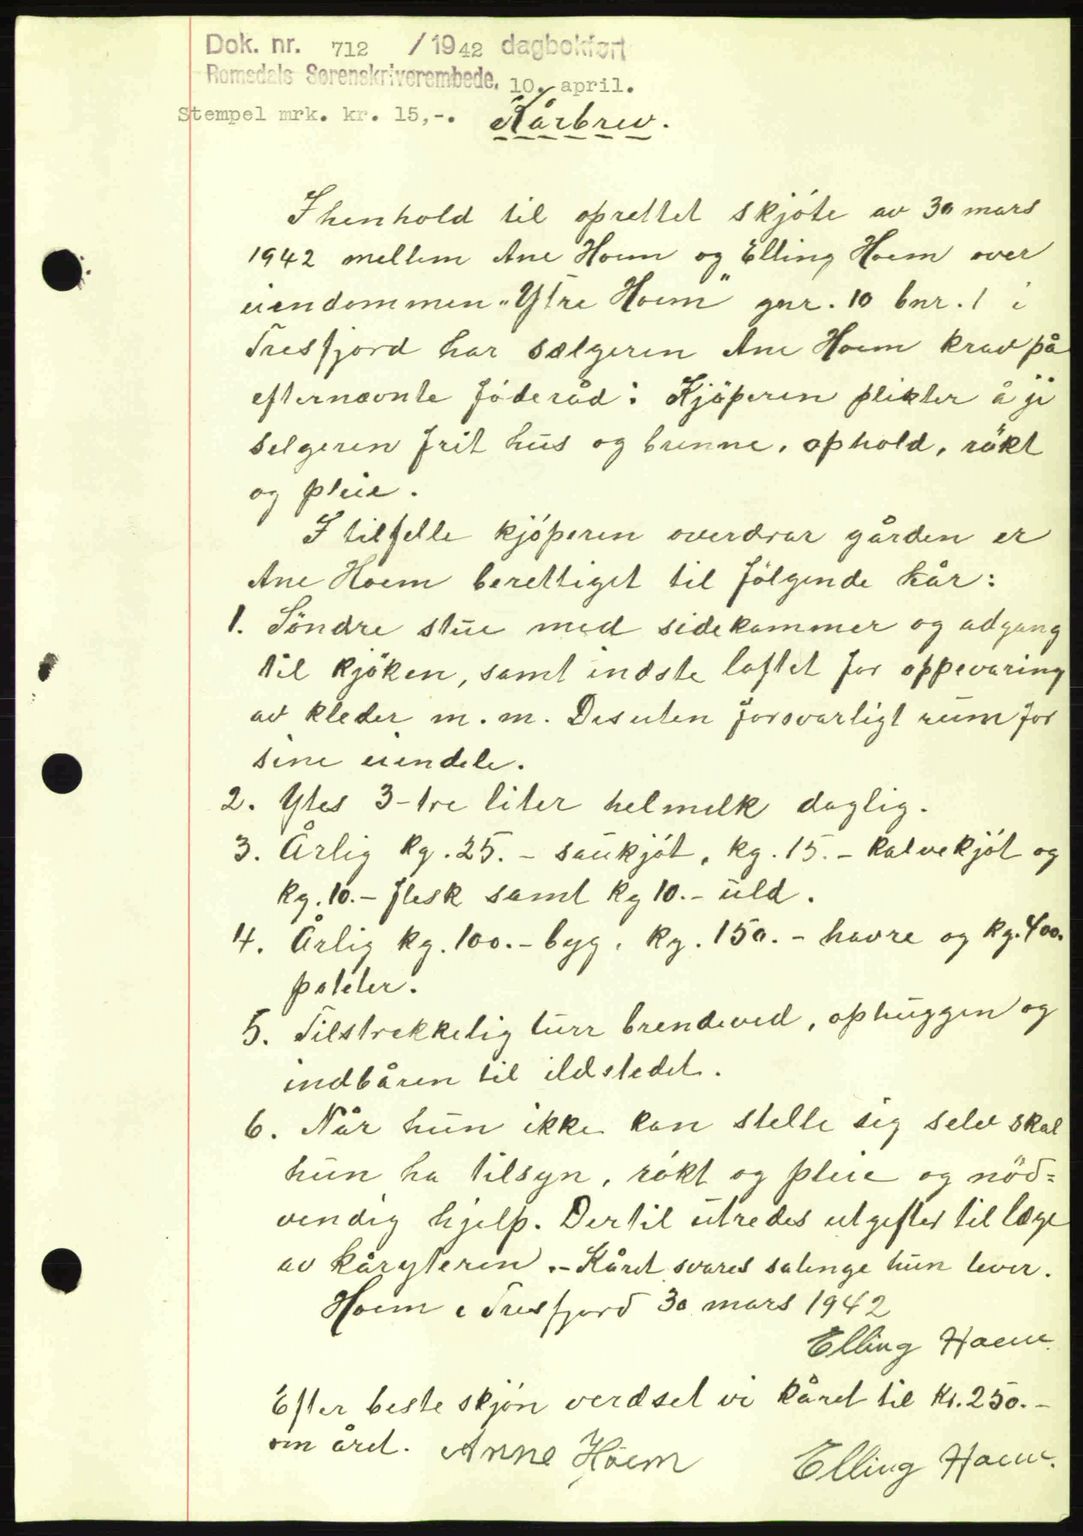 Dok. nr. 712 /1942 dagbokført
Romsdals Sørenskriverembede. 10. april.
Stempel mrk. kr. 15,-.
Kårbrev.
I henhold til oprettet skjöte av 30 mars
1942 mellem Ane Hoem og Elling Hoem over
eiendommen "Ytre Hoem" gnr. 10 bnr. 1 i
Tresfjord har sælgeren Ane Hoem krav på
efternævnte föderåd: Kjöperen plikter å gi
selgeren frit hus og brenne, ophold, rökt
og pleie.
I tilfelle kjöperen overdrar gården er
Ane Hoem berettiget til fölgende kår:
1. Söndre stue med sidekammer og adgang
til kjöken, samt indste loftet for oppevaring
av kleder m.m. Desuten forsvarligt rum for
sine eiendele.
2. Ytes 3-tre liter helmelk daglig.
3. Årlig kg. 25.- saukjöt, kg. 15.- kalvekjöt og
kg. 10.- flesk samt kg 10.- uld.
4. Årlig kg. 100.- byg, kg. 150.- havre og kg. 400.
poteter.
5. Tilstrekkelig turr brendeved, ophuggen og
indbåren til ildstedet.
6. Når hun ikke kan stelle sig selv skal
hun ha tilsyn, rökt og pleie og nöd=
vendig hjelp. Dertil utredes utgifter til læge
av kåryteren.- Kåret svares salenge hun lever.
Hoem i Tresfjord 30 mars 1942
Elling Hoem.
Efter beste skjön verdset vi kåret til kr. 250.-
om året. Anne Hoem Elling Hoem.